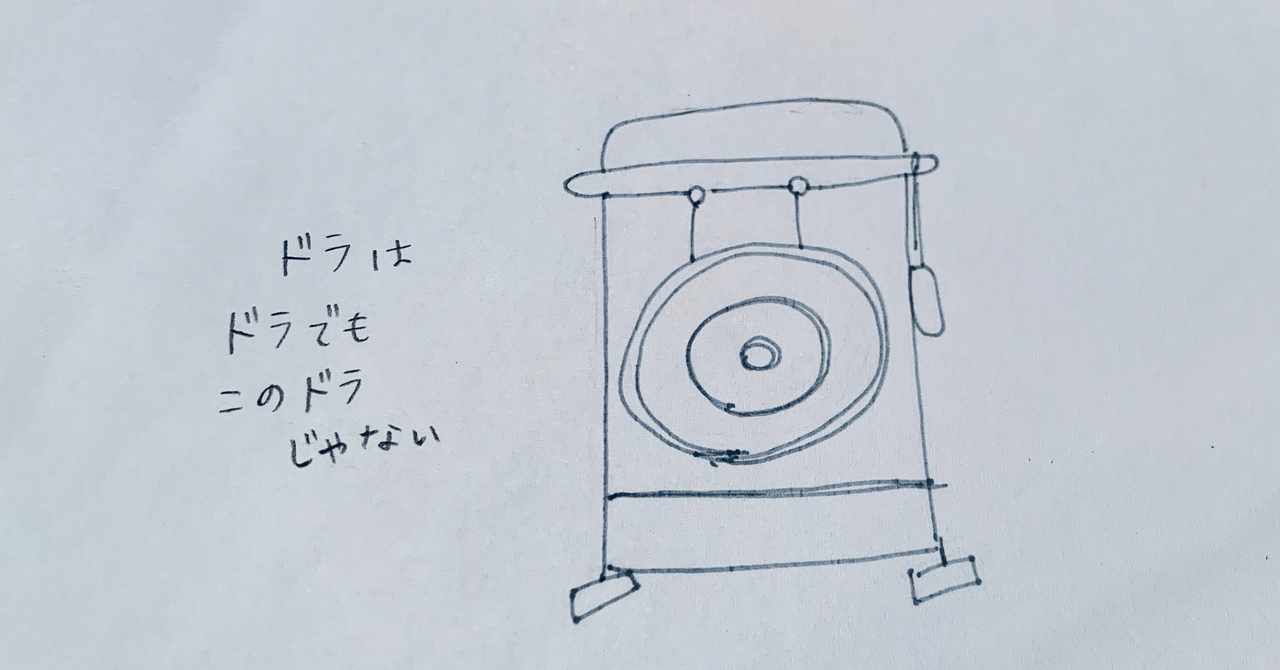 ドラは
ドラでも
このドラ
じゃない